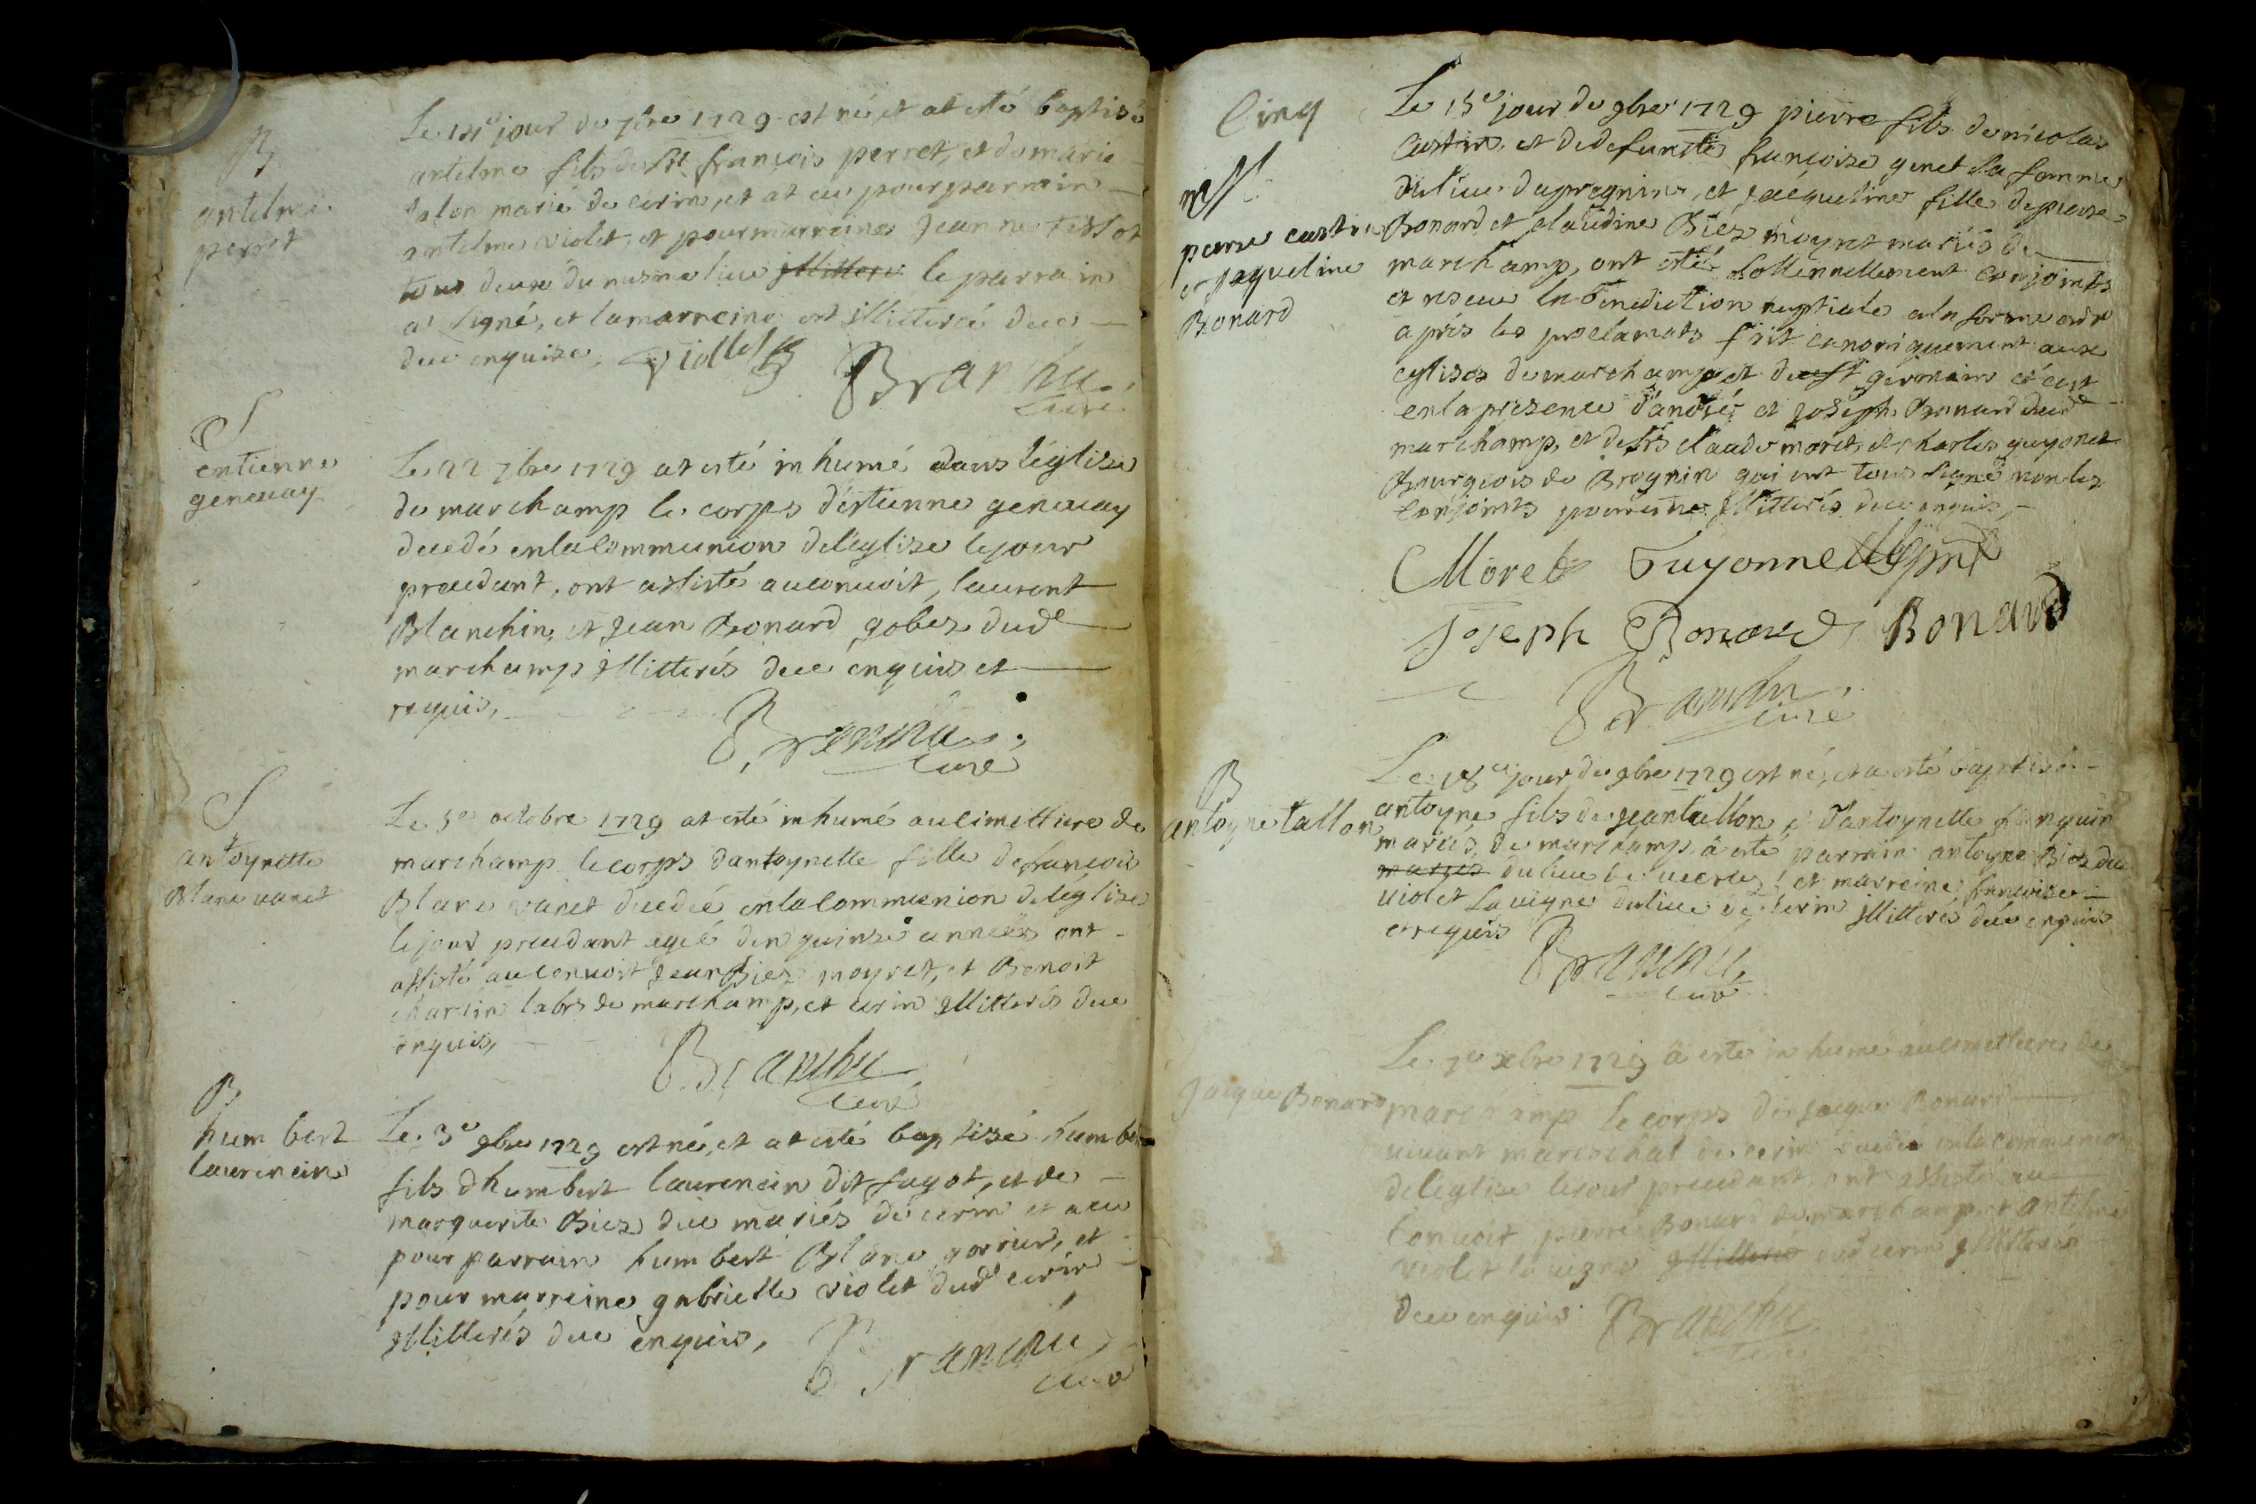 B
antelme
perret
Le jour de 7bre 1729 est né, et at esté baptisé
antelme fils de Sr françois perret, et de marie
talon mariés de cerin, et at eu pour parrain
antelme violet, et pour marreine Jeanne tissot
tous deux du mesme lieu illitteré le parrain
at signé, et la marreine est illitterée de ce
due enquise, Viollet
Branchu
curé
S
entienne
genevay
Le 22 7bre 1729 at esté inhumé dans léglise
de marchamp le corps d'estienne genevay
decedé en la communion de l'eglise le jour
precedant, ont assisté au convoit, laurent
Blanchin et Jean Bonard gobes dudt
marchamp illitterés de ce enquis et
requis,
Branchu
curé
S
antoynette
Blanc vanet
Le 5e octobre 1729 at esté inhumé au cimettiere de
marchamp le corps d'antoynette fille de françois
Blanc vanet decedée en la communion de l'eglise
le jour precedant agée d'en quinse années ont
assisté au convoit Jean Biez moyret, et Benoit
charvin labrs de marchamp, et cerin illitterés de ce
enquis,
Branchu
curé
B
humbert
laurencin
Le 3e 9bre 1729 est né, et at esté baptisé humbert
fils d'humbert laurencin dit fagot, et de
marguerite Biez duc mariés de cerin et a eu
pour parrain humbert Blanc, et
pour marreine gabrielle violet dudt cerin
illitterés de ce enquis,
Branchu
curé
Cinq
M
pierre
et Jaqueline
Bonard
Le 15e jour de 9bre 1729 pierre fils de nicolas
et de defuncte françoise genet sa femme
du lieu de pregnin, et Jacqueline fille de pierre
Bonard et claudine Biez moyret mariés de
marchamp, ont esté sollennellement conjoints
et receu la benediction nuptiale en la forme ordre
après les proclamats fait canoniquement aux
eglises de marchamp et de St germain et c'est
en la presence d'andré et Joseph Bonard dudt
marchamp, et de Srs claude moret, et charles guyonet
Bourgeois de Brognin qui ont tous signé non les
conjoints pour estre illitterés de ce enquis,
Moret Guyonnet
Joseph Bonard Bonard
Branchu
curé
B
antoyne tallon
Le 18e jour de 9bre 1729 est né, et a esté baptisé
antoyne fils de Jean tallon, et d'antoynette
mariés de marchamp, a esté parrain antoyne Biez duc
mariés du lieu de et marreine françoise
violet la vigne du lieu de cerin illitterés de ce enquis
et requis
Branchu
curé
Jacque Bonard
Le 7e xbre 1729 a esté inhumé au cimettiere de
marchamp le corps de Jacque Bonard
vivant mareschal de cerin decedé en la communion
de l'eglise le jour precedant, ont assisté au
convoit pierre Bonard de marchamp et antelme
violet la vigne illitteré dudt cerin illitterés
de ce enquis Branchu
curé